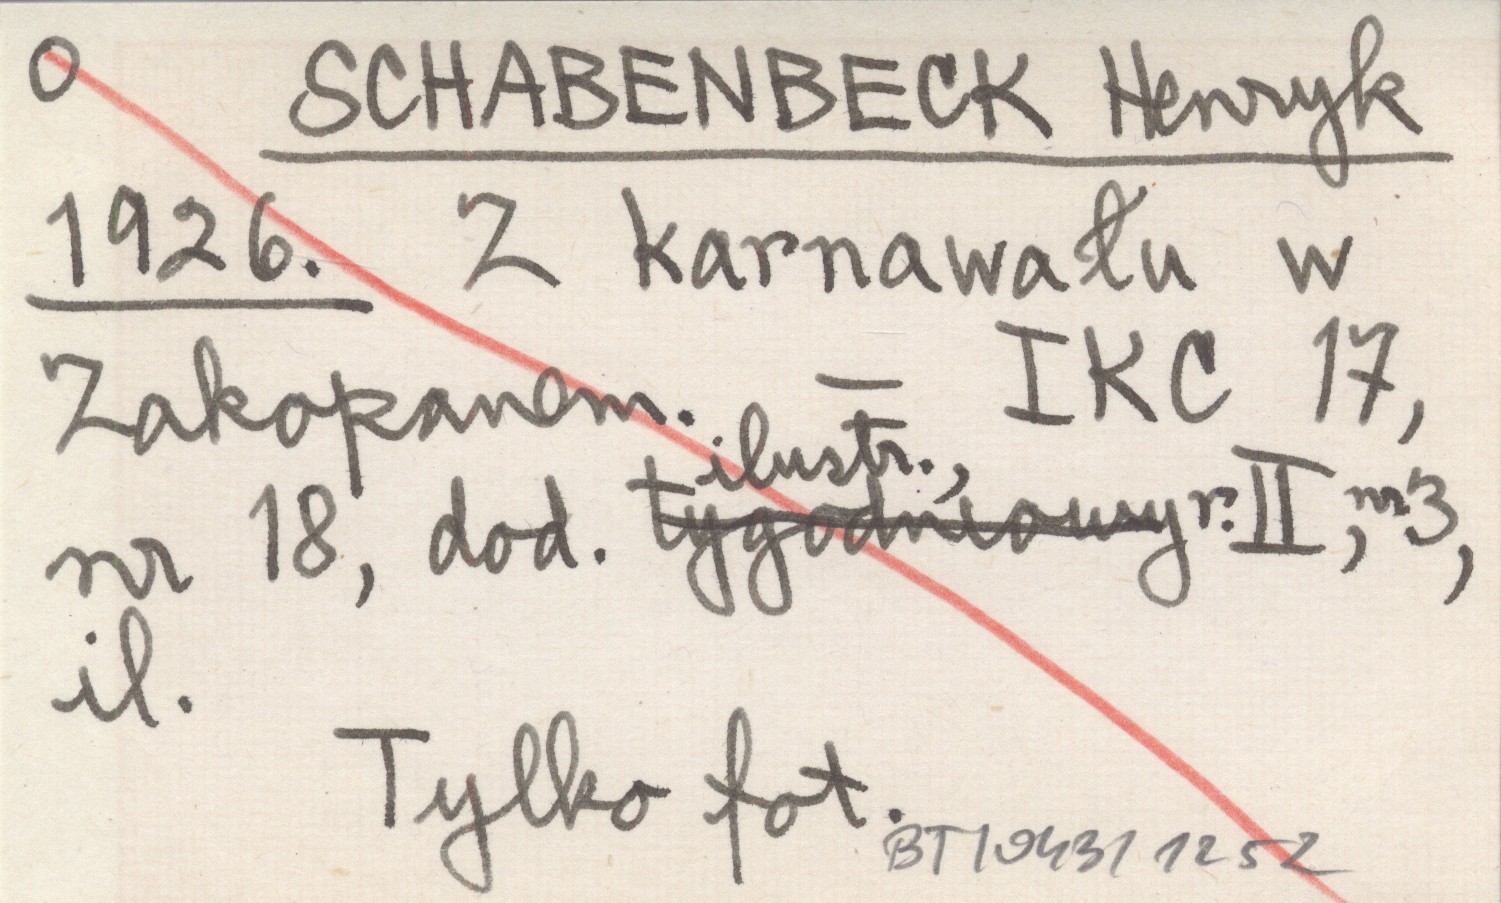 O SCHABENBECK Henryk
1926. Z karnawału w
Zakopanem. — IKC 17,
ilustr.,
nr 18, dod. tygodniowy r. II, nr 3,
il.
Tylko fot.
BT 10431 1252